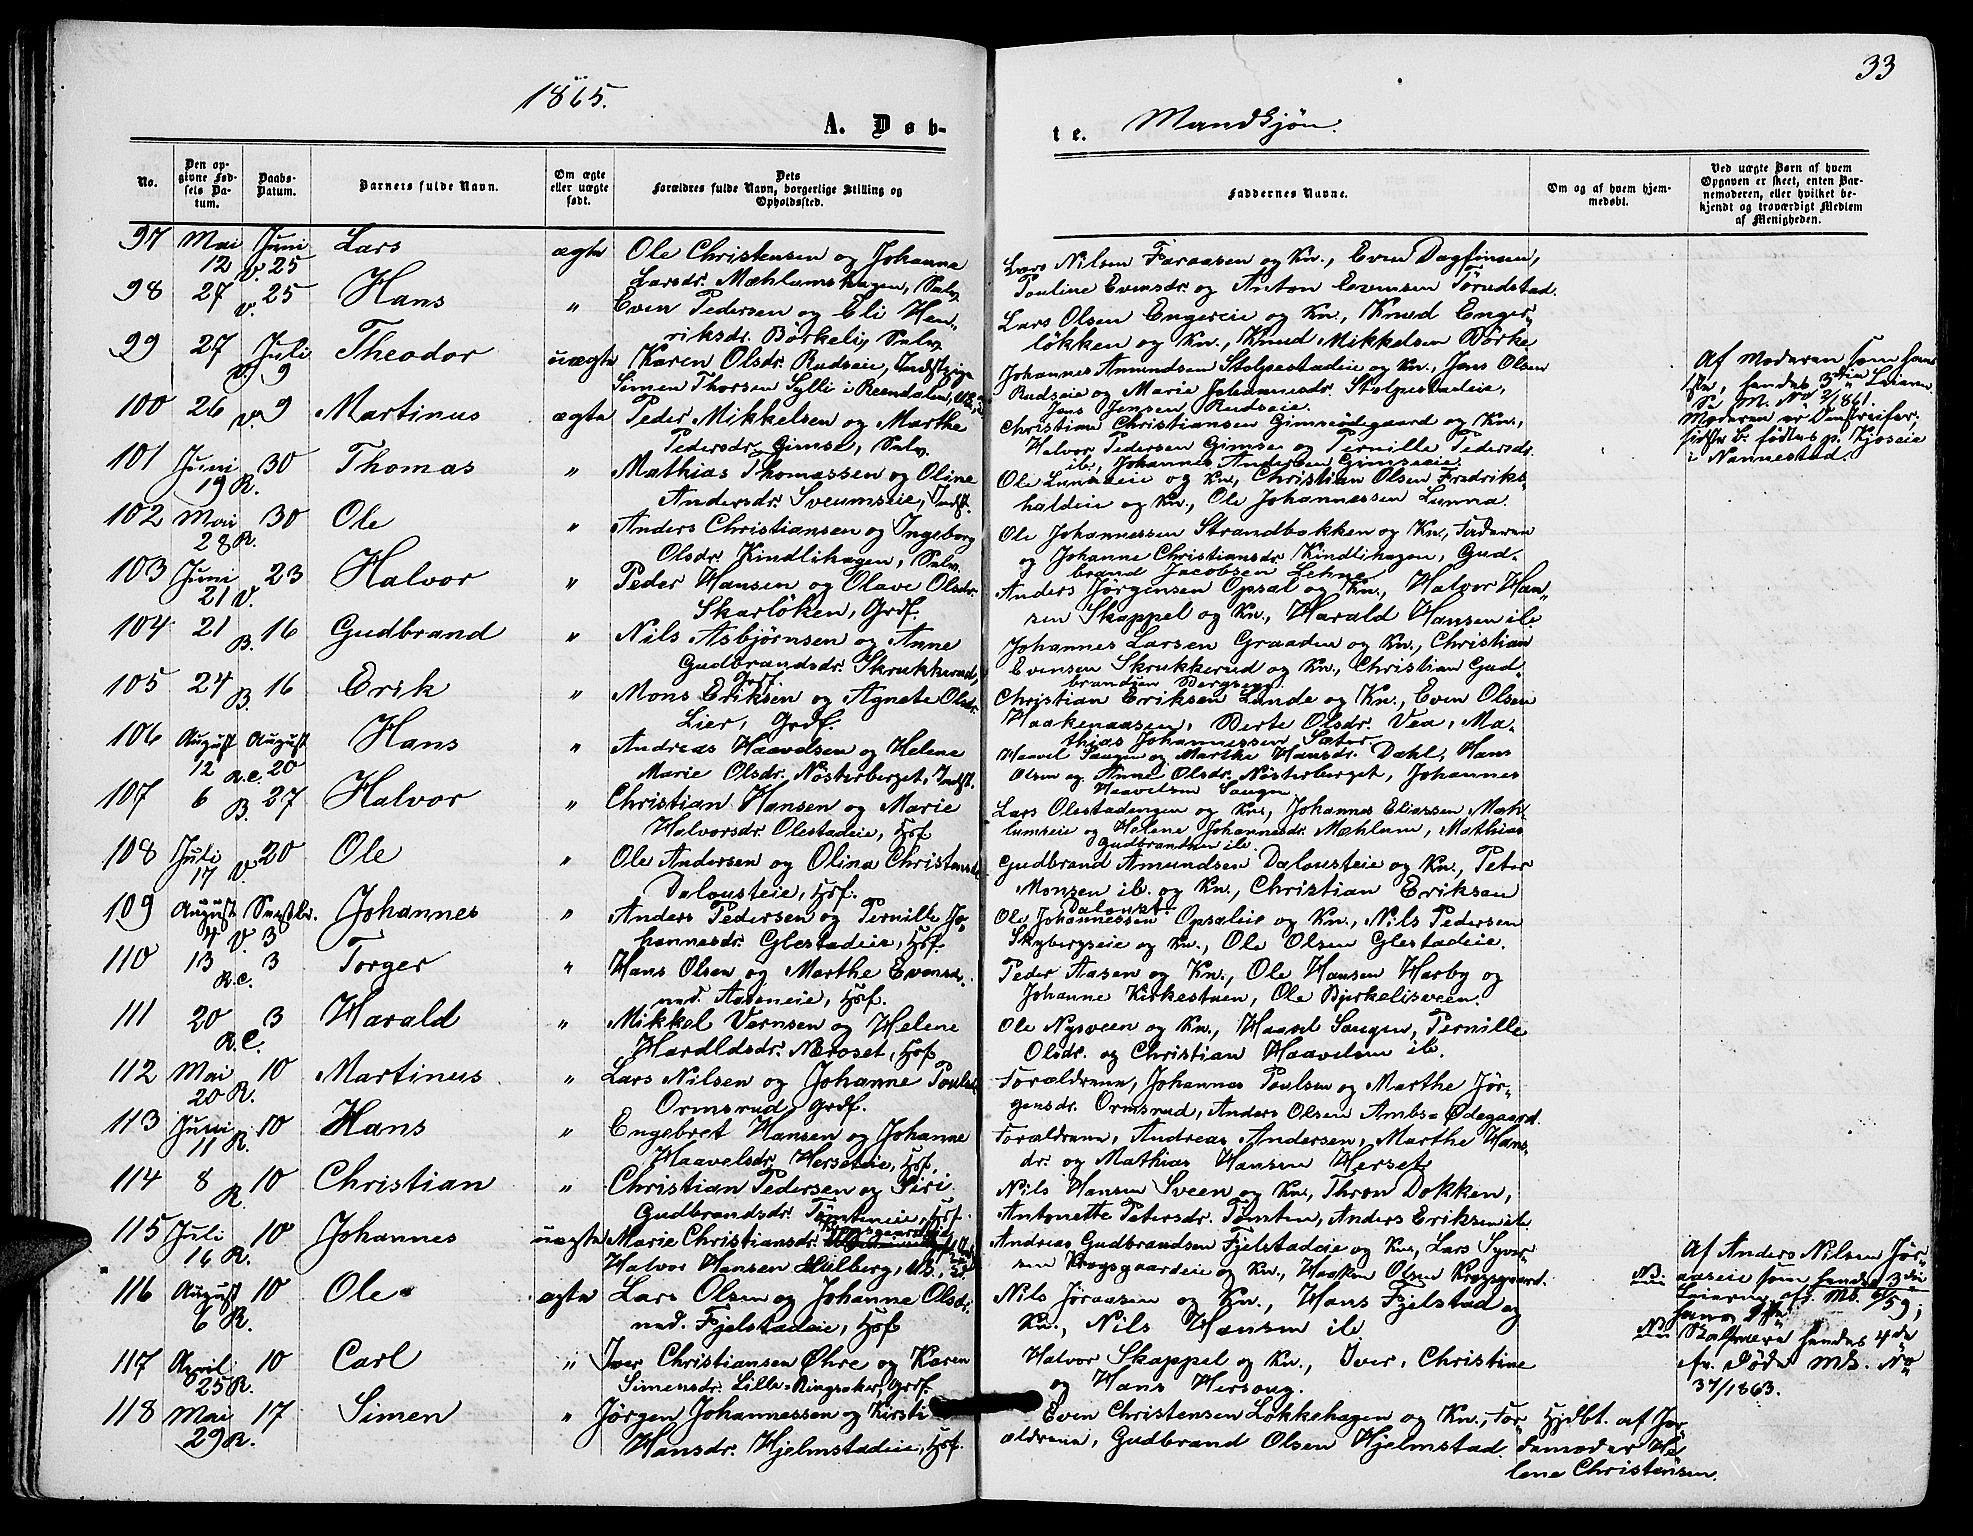 33
1865.
A. Døb-
te. Mandkjøn.
No.
Den op-
givne Fød-
sels Da-
tum.
Daabs-
Datum.
Barnets fulde Navn.
Om ægte
eller uægte
født.
Dets
Forældres fulde Navn, borgerlige Stilling og
Opholdssted.
Faddernes Navne.
Om og af hvem hjem-
medøbt.
Ved uægte Børn af hvem
Opgaven er skeet, enten Bar-
nemoderen, eller hvilket be-
kjendt og troværdigt Medlem
af Menigheden.
97 Mai 12 Juni V. 25 Lars ægte Ole Christensen og Johanna
Larsdr. Mæhlumshagen, Selv.
Lars Nilsen Faraasen og Kn., Even Dagfinsen,
Pauline Evensdr. og Anton Evensen Törudstad.
98 27 V. 25 Hans " Even Pedersen og Eli Hen-
riksdr. Börkeli, Selv.
Lars Olsen Engereie og Kn., Knud Enger-
løkken og Kn., Knud Mikkelsen Börke
99 27 Juli V. 9 Theodor uægte Karen Olsdr. Rudseie, Indst. pige
Simen Thorsen Sylli i Reendalen,
Johannes Amundsen Stolpestadeie og Kn., Jens Olsen
Rudseie og Marie Johannesdr. Stolpestadeie,
Jens Jensen Rudseie.
Af Moderen som hans
Fr., hendes 3die Leierm.
Se M. No 2/1861.
Moderen er Omstreifer;
sidste B. födtes p. Kjoseie
i Nannestad.
100 26 V. 9 Martinus ægte Peder Mikkelsen og Marthe
Pedersdr. Gimse, Selv.
Christian Christiansen Gimseödegaard og Kn.,
Halvor Pedersen Gimse og Pernille Pedersdr.
ib., Johannes Andersen Gimseeie.
101 Juni 19 R. 30 Thomas " Mathias Thomassen og Oline
Andersdr. Sveumseie, Indst.
Ole Lunaeie og Kn., Christian Olsen Fredriks-
haldeie og Kn., Ole Johannessen Lunna.
102 Mai 28 R. 30 Ole " Anders Christiansen og Ingeborg
Olsdr. Kindlihagen, Selv.
Ole Johannessen Strandbakken og Kn., Faderen
og Johanne Christiansdr. Kindlihagen, Gud-
brand Jacobsen Lehne
103 Juni 21 V. 23 Halvor " Peder Hansen og Olave Olsdr.
Skarlöken, Grdf.
Anders Jörgensen Opsal og Kn., Halvor Han-
sen Skappel og Kn., Harald Hansen ib.
104 21 B. 16 Gudbrand " Nils Asbjørnsen og Anne
Gudbrandsdr. Skrukkerud,
Grdf.
Johannes Larsen Graaden og Kn., Christian
Evensen Skrukkerud og Kn., Christian Gud-
brandsen Bergseng.
105 24 B. 16 Erik " Mons Eriksen og Agnete Olsdr.
Lier, Grdf.
Christian Eriksen Lunde og Kn., Even Olsen
Haakenaasen, Berte Olsdr. Vea, Ma-
thias Johannessen Sæter.
106 August 12 August R.C. 20 Hans " Andreas Haavelsen og Helene
Marie Olsdr. Nösterberget, Indst.
Haavel Saugen og Marthe Hansdr. Dæhl, Hans
Olsen og Anne Olsdr. Nösterberget, Johannes
Haavelsen Saugen
107 6 B. 27 Halvor " Christian Hansen og Marie
Halvorsdr. Olestadeie, Hsf.
Lars Olestadengen og Kn., Johannes Eliassen Mæh-
lumseie og Helene Johannesdr. Mæhlum, Mathias
Gudbrandsen ib.
108 Juli 17 V. 20 Ole " Ole Andersen og Olina Christensdr.
Dalousteie, Hsf.
Gudbrand Amundsen Dalousteie og Kn., Peter
Monsen ib. og Kn., Christian Eriksen
Daloust.
109 August 4 Septbr. V. 3 Johannes " Anders Pedersen og Pernille Jo-
hannesdr. Glestadeie, Hsf.
Ole Johannessen Opsaleie og Kn., Nils Pedersen
Skybergseie og Kn., Ole Olsen Glestadeie.
110 13 R.C. 3 Torger " Hans Olsen og Marthe Evensdr.
ned. Aaseneie, Hsf.
Peder Aasen og Kn., Ole Hansen Harby og
Johanne Kirkestuen, Ole Bjerkelisveen.
111 20 R.C. 3 Harald " Mikkel Vernsen og Helene
Hardldsdr. Næroset, Hsf.
Ole Nysveen og Kn., Haavel Saugen, Pernille
Olsdr. og Christian Haavelsen ib.
112 Mai 20 R. 10 Martinus " Lars Nilsen og Johanne Poulsdr.
Ormsrud, Grdf.
Forældrene, Johannes Poulsen og Marthe Jör-
gensdr. Ormsrud, Anders Olsen Ambs-Ödegaard.
113 Juni 11 R. 10 Hans " Engebret Hansen og Johanne
Haavelsdr. Herseteie, Hsf.
Forældrene, Andreas Andersen, Marthe Hans-
dr. og Mathias Hansen Herset.
114 8 R. 10 Christian " Christian Pedersen og Siri
Gudbrandsdr. Tömteneie, Hsf.
Nils Hansen Sveen og Kn., Thron Dokken,
Antonette Petersdr. Tömten, Anders Eriksen ib.
115 Juli 16 R. 10 Johannes uægte Marie Christiansdr. Krogsgaardeie
Halvor Hansen Lilberg,
Andreas Gudbrandsen Fjelstadeie og Kn., Lars Syver-
sen Krogsgaardeie og Kn., Haaken Olsen Krogsgaard.
Af Anders Nilsen Jör-
aaseie som hendes 3die
Leierm. cfr. Mb. /59;
hans 1ste
116 August 6 R. 10 Ole ægte Lars Olsen og Johanne Olsdr.
ned. Fjelstadeie, Hsf
Nils Jöraasen og Kn., Hans Fjelstad og
Kn., Nils Hansen ib.
NB. hendes 4de
Mb. No
37/1863.
117 April 25 R. 10 Carl " Iver Christiansen Öhre og Karen
Simensdr. Lille-Ringsaker, Grdf.
Halvor Skappel og Kn., Iver, Christine
og Hans Hersoug.
118 Mai 29 R. 17 Simen " Jörgen Johannessen og Kirsti
Hansdr. Hjelmstadeie, Hsf.
Even Christensen Løkkehagen og Kn., For-
ældrene, Gudbrand Olsen Hjelmstad.
Hjdbt. af Jor-
demoder He-
lene Christensen.